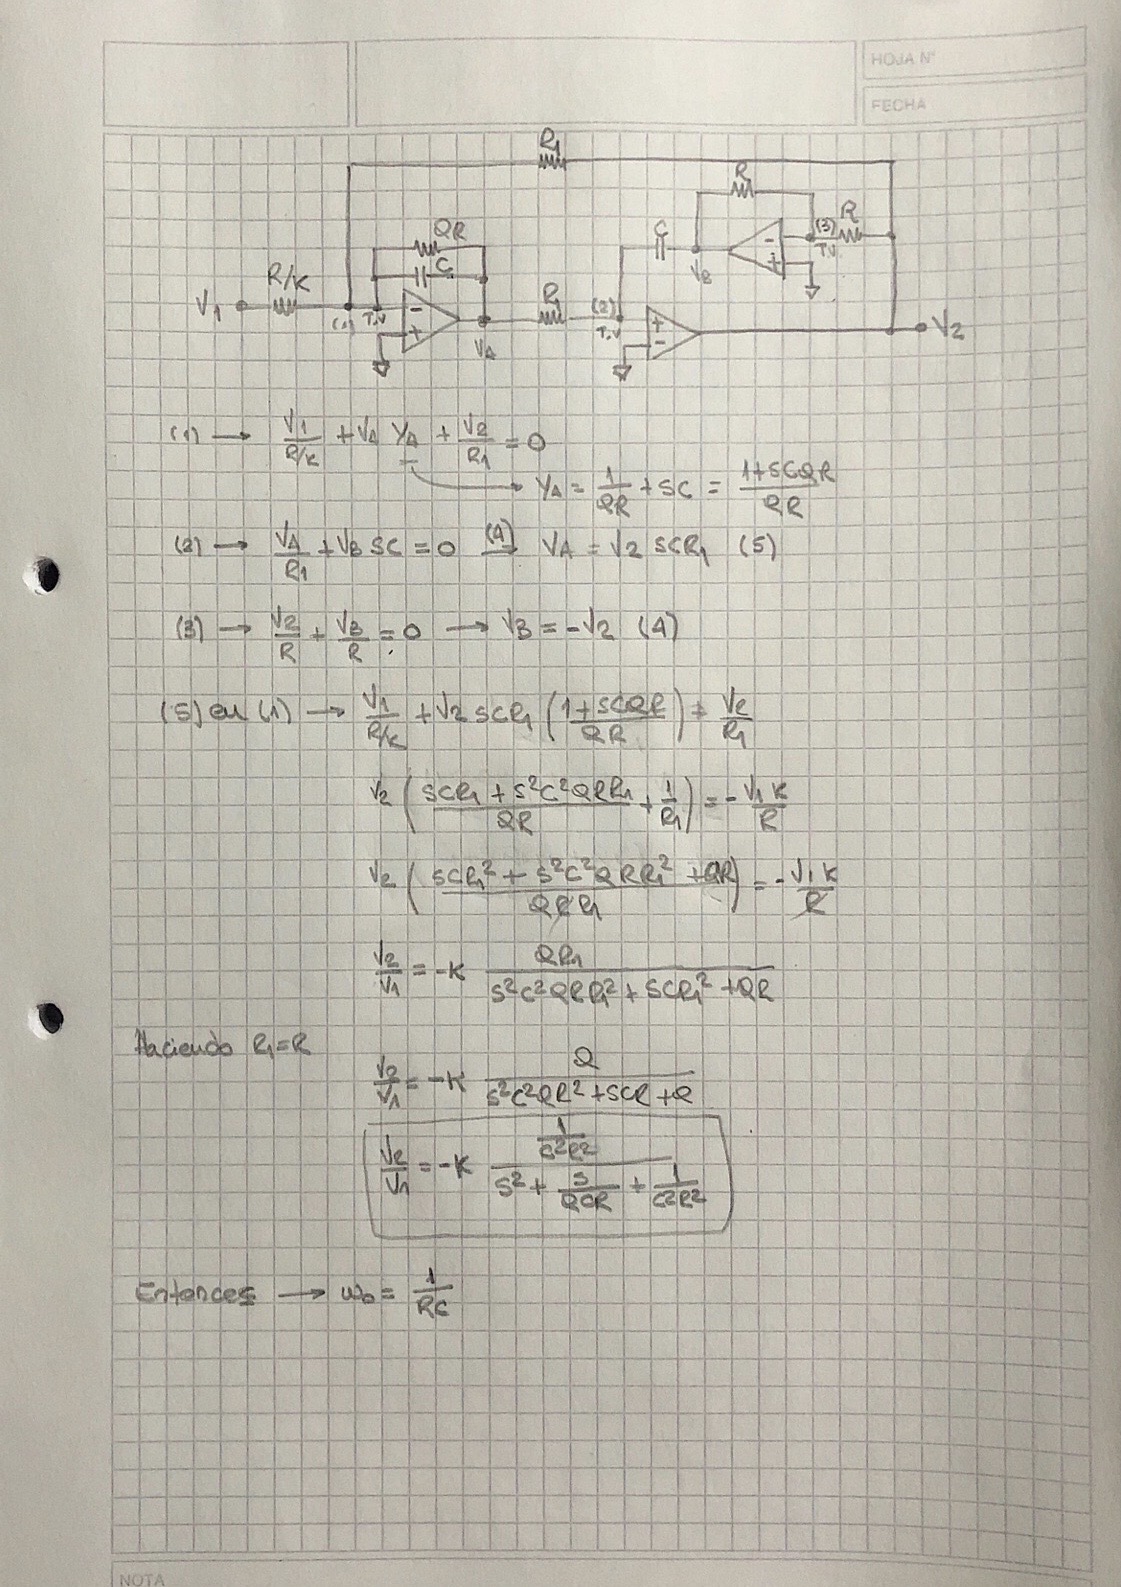 HOJA N°
FECHA
R1
R
R
QR
C
C
(3)
T.V
R/K
V1
(1) T.V
- +
VA
R1
(2)
T.V
+ -
VB
- +
V2
(1) → V1/(R/K) + VA YA + V2/R1 = 0
YA = 1/QR + SC = (1+SCQR)/QR
(2) → VA/R1 + VB SC = 0 (4)→ VA = V2 SCR1 (5)
(3) → V2/R + VB/R = 0 → VB = -V2 (4)
(5) en (1) → V1/(R/K) + V2 SCR1 ((1+SCQR)/QR) + V2/R1
V2 ((SCR1 + S²C²QRR1)/QR + 1/R1) = - V1 K/R
V2 ((SCR1² + S²C²QRR1² + QR)/QRR1) = - V1 K/R
V2/V1 = -K QR1/(S²C²QRR1² + SCR1² + QR)
Haciendo R1=R
V2/V1 = -K Q/(S²C²QR² + SCR + Q)
V2/V1 = -K (1/C²R²)/(S² + S/QCR + 1/C²R²)
Entonces → ω0 = 1/RC
NOTA